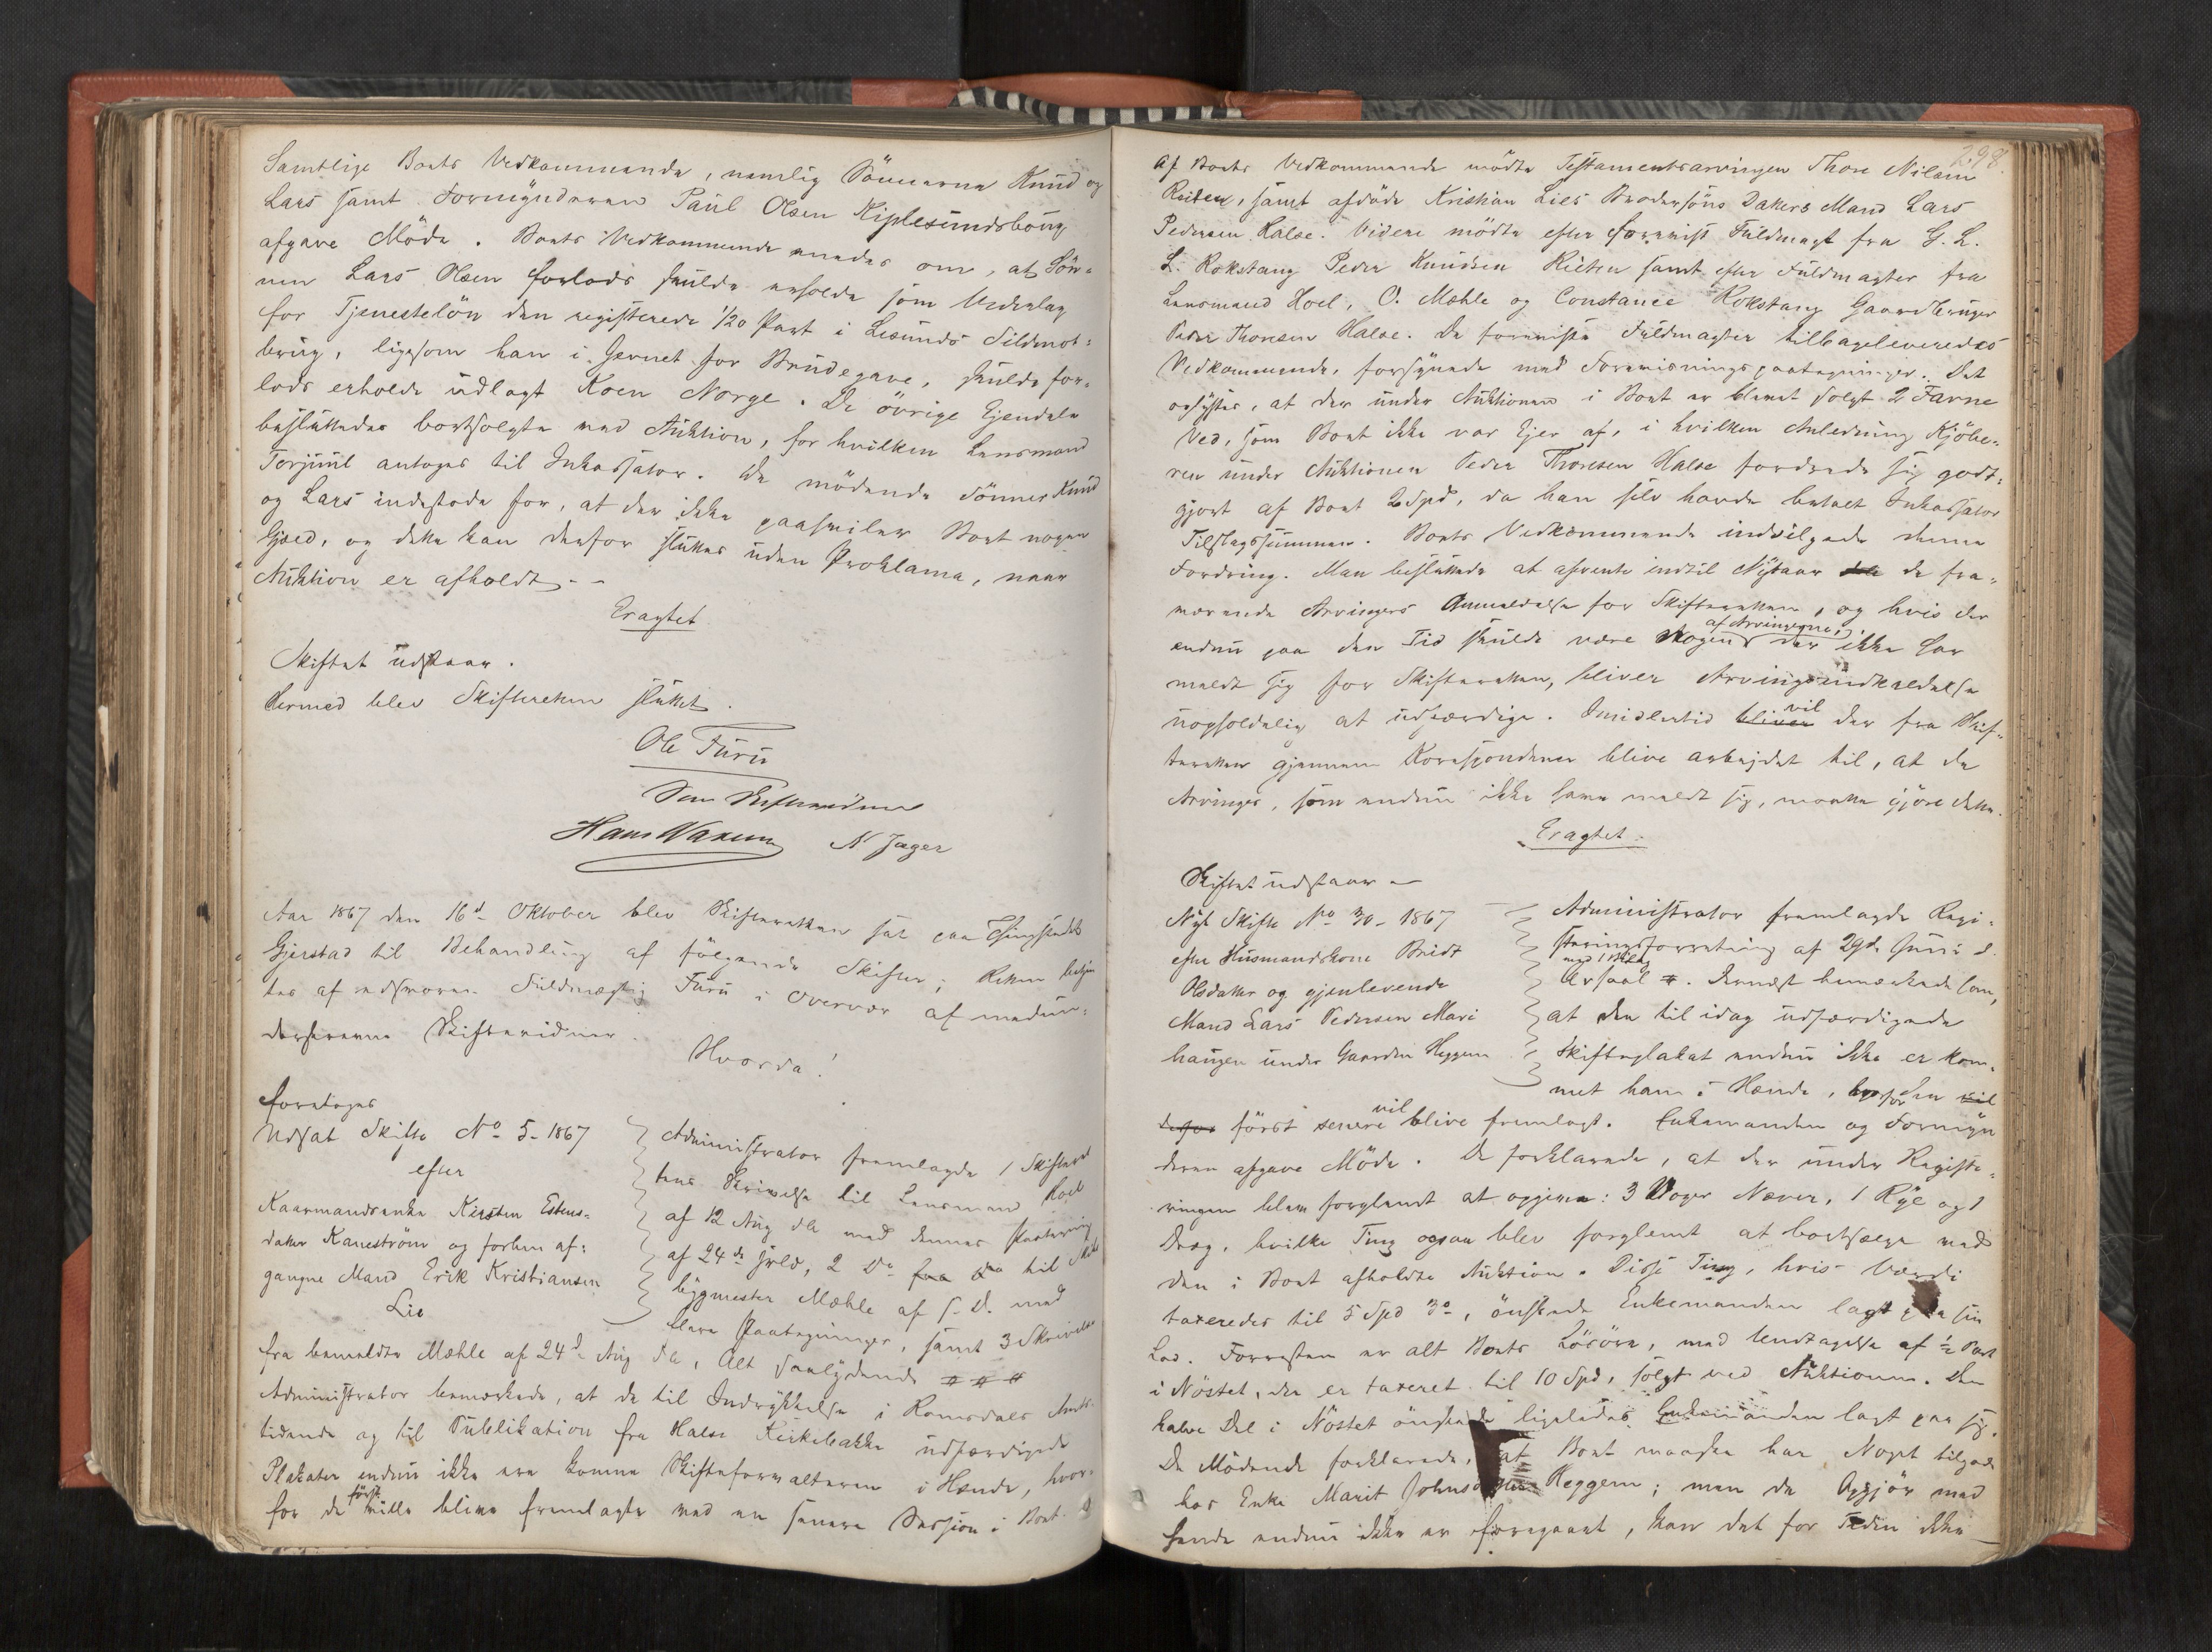 Samtlige Boets Vedkommende, nemlig Sönnerne Knud og
Lars samt Formynderen Paul Olsen Kiplesundsboug
afgave Möde. Boets Vedkommende enedes om, at Sön-
nen Lars Olsen forlods skulde erholde som Vederlag
for Tjenestelön den registerede 1/20 Part i Lesunds Sildenot-
brug, ligesom han i Henhet for Brudegave, skulde for-
lods erholde udlagt Koen Norge. De övrige Eiendele
besluttedes bortsolgte ved Auktion, for hvilken Lensmand
Torjuul antoges til Inkassator. De mödende Sönner Knud
og Lars indestode for, at der ikke paahviler Boet nogen
Gjæld, og dette kan derfor sluttes uden Proklama, naar
Auktion er afholdt. -
Eragtet
Skiftet udstaar.
Dermed blev Skifteretten sluttet.
Ole Furu
Som Skiftevidner
Hans N Jager
Aar 1867 den 16d Oktober blev Skifteretten sat paa Thingstedet
Gjerstad til Behandling af fölgende Skifter; Retten betjen
tes af edsvoren Fuldmægtig Furu i Overvær af medun-
derskrevne Skiftevidner.
Hvorda!
foretoges
Udsat Skifte No 5-1867
efter
Kaarmandsenke Kirsten Estens-
datter Kaneström og forhen af-
gangne Mand Erik Kristiansen
Lie
Administrator fremlagde 1 Skifteret
tens Skrivelse til Lensmand Hoel
af 12 Aug d.A. med dennes Paategning
af 24de Juli, 2 Do fra do til
bygmester Mæhle af S.D. med
flere Paategninger, samt 3 Skrivelse
fra bemeldte Mæhle af 24d Aug d.A., Alt saalydende # # #
Administrator bemærkede, at de til Indrykkelse i Romsdals Amts-
tidende og til Publikation fra Halse Kirkebakke udfærdigede
Plakater endnu ikke ere komne Skifteforvalteren i Hænde, hvor-
for de först ville blive fremlagte ved en senere Session i Boet.
298.
Af Boets Vedkommende mödte Testamentsarvingen Thore Nilsen
Rüten, samt afdöde Kristian Lies Brodersöns Datters Mand Lars
Pedersen Halse. Videre mödte efter forevist Fuldmagt fra G. L.
L. Rokstang Peder Knudsen Rüten samt efter Fuldmagter fra
Lensmand Hoel, O. Mæhle og Constance Rokstang Gaardbruger
Peder Thoresen Halse. De foreviste Fuldmagter tilbageleveredes
Vedkommende, forsynede med Forevisningspaategninger. Det
oplystes, at der under Auktionen i Boet er blevet solgt 2 Favne
Ved, som Boet ikke var Ejer af, i hvilken Anledning Kjöbe-
ren under Auktionen Peder Thoresen Halse fordrede sig godt-
gjort af Boet 2 Spd, da han selv havde betalt Inkassator
Tilslagssummen. Boets Vedkommende indvilgede denne
Fordring. Man besluttede at afvente indtil Nytaar de fra-
værende Arvingers Anmeldelse for Skifteretten, og hvis der
endnu paa den Tid skulde være Nogen af Arvingerne, der ikke har
meldt sig for Skifteretten, bliver Arvingsindkaldelse
uopholdelig at udfærdige. Imidlertid bliver vil der fra Skif-
teretten gjennem Korespondence blive arbejdet til, at de
Arvinger, som endnu ikke have meldt sig, maatte gjöre dette.
Eragtet.
Skiftet udstaar -
Nyt Skifte No 30-1867
efter Huusmandskone Bridt
Olsdatter og gjenlevende
Mand Lars Pedersen Mari
haugen under Gaarden Heggem
Administrator fremlagde Regi-
steringsforretning af 29de Juni d.
med 1 Bilag
Aar saal #. Dernæst bemærkede han,
at den til idag udfærdigede
Skifteplakat endnu ikke er kom-
met ham i Hænde, hvorfor den vil
derfor först senere vil blive fremlagt. Enkemanden og Formyn
deren afgave Möde. De forklarede, at der under Registe-
ringen blev forglemt at opgive: 3 Voger Næver, 1 Rye og 1
Dreg, hvilke Ting ogsaa blev forglemt at bortsælge ved
den i Boet afholdte Auktion. Disse Ting, hvis Værdi
taxeredes til 5 Spd 3o, önskede Enkemanden lagt paa sin
Lod. Forresten er alt Boets Lösöre, med Undtagelse af ½ Part
i Nöstet, der er taxeret til 10 Spd, solgt ved Auktionen. Den
halve Del i Nöstet önskede ligeledes Enkemanden lagt paa sig.
De Mödende forklarede, at Boet maaske har Noget tilgode
hos Enke Marit Heggem; men da Opgjör med
hende endnu ikke er foregaaet, kan det for Tiden ikke